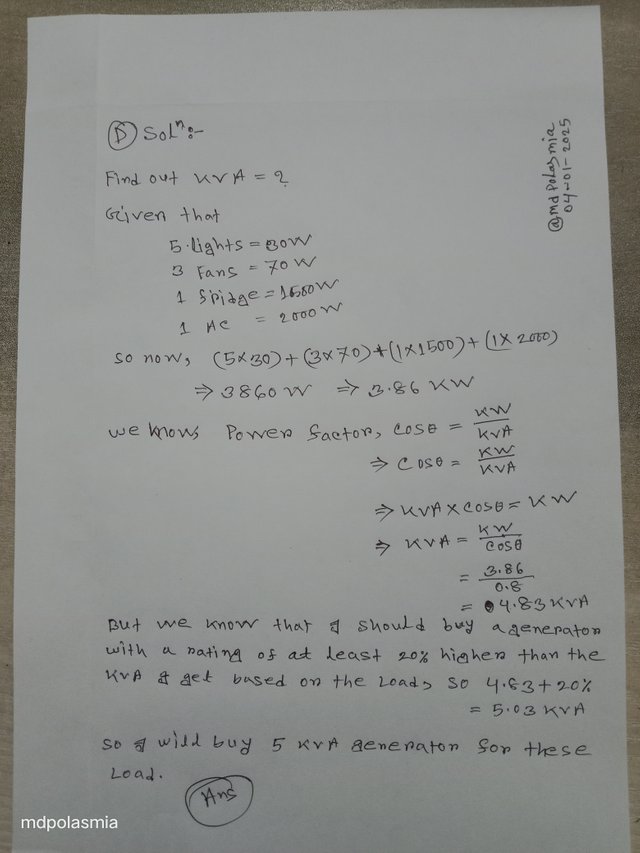 (D) Solⁿ:-
@mdpolasmia
04-01-2025
Find out KVA = ?
Given that
5 Lights = 30W
3 Fans = 70W
1 fridge = 1500W
1 AC = 2000W
So now, (5×30)+(3×70)+(1×1500)+(1×2000)
⇒ 3860 W ⇒ 3.86 KW
We know, Power factor, cosθ = KW/KVA
⇒ cosθ = KW/KVA
⇒ KVA × cosθ = KW
⇒ KVA = KW/cosθ
= 3.86/0.8
= 4.83 KVA
But we know that I should buy a generator
with a rating of at least 20% higher than the
KVA I get based on the load, so 4.83+20%
= 5.03 KVA
So I will buy 5 KVA generator for these
Load.
Ans
mdpolasmia